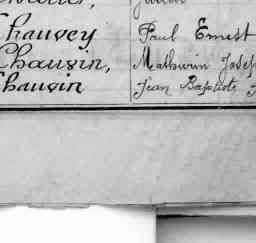 Chauvey Paul Ernest
Chauvin, Mathurin Josep
Chauvin Jean Baptiste